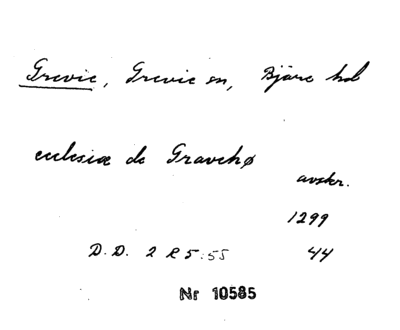 Grevie, Grevie sn, Bjäre hd
ecclesiæ de Gravehø
avskr.
1299
D.D. 2 R 5:55 44
Nr 10585